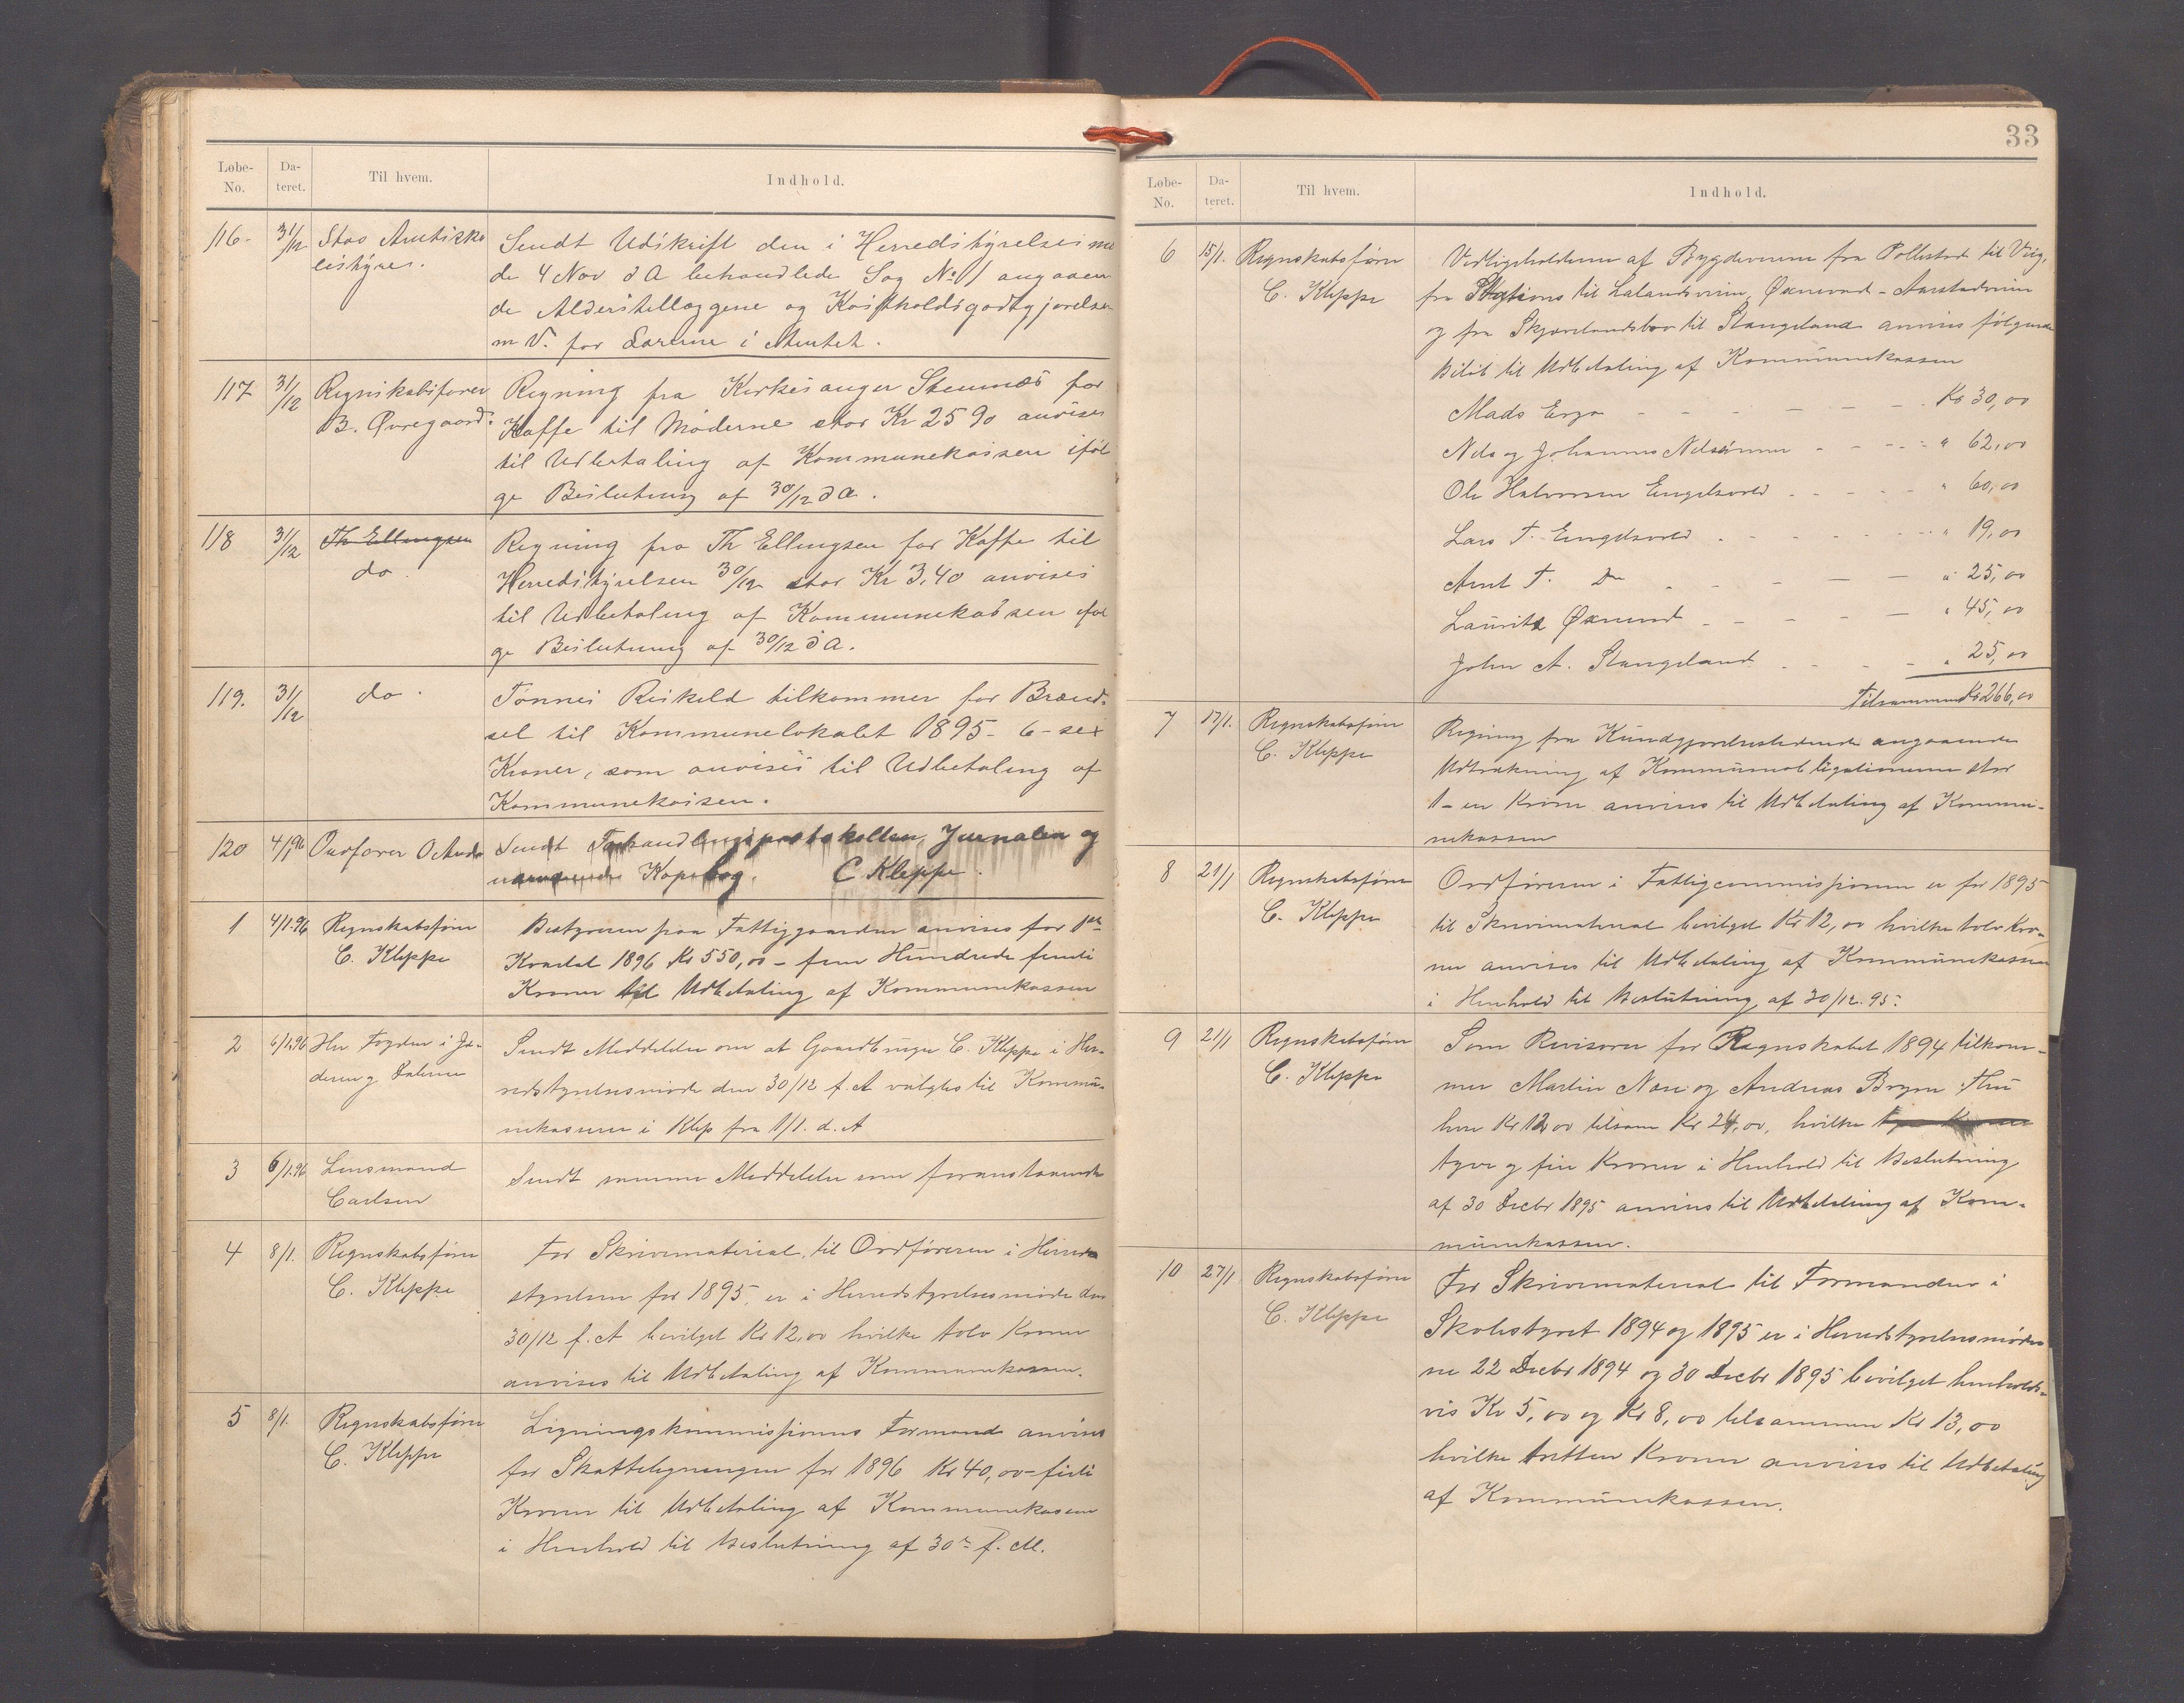 Løbe-No. Da-teret. Til hvem. Indhold.
116- 31/12 Stav Amtsskolestyre.
Sendt Udskrift den i Herredstyrelsesmø
de 4 Nov d A behandlede Sag No 11 angaaen
de Alderstillæggene og Kostholdsgodtgjørelse
m V. for Lærerne i Amtet.
117 31/12 Regnskabsfører
B. Øvregaard.
Regning fra Kirkesanger Stennæs for
Kaffe til Møderne stor Kr 25 90 anvises
til Udbetaling af Kommunekassen iføl
ge Beslutning af 30/12 d A.
118 31/12 Th Ellingsen
do.
Regning fra Th Ellingsen for Kaffe til
Herredstyrelsen 30/12 stor Kr 3,40 anvises
til Udbetaling af Kommunekassen iføl
ge Beslutning af 30/12 d A.
119. 31/12 do.
Tønnes Reiskeld tilkommer for Brænd-
sel til Kommunelokalet 1895- 6- sex
Kroner, som anvises til Udbetaling af
Kommunekassen.
120 4/1 96 Ordfører
Sendt Forhandlingsprotokollen, Jurnalen og
nærværende Kopibog. C Kleppe.
1 4/1.96 Regnskabsfører
C. Kleppe
Bestyreren paa Fattiggaarden anvises for 1ste
Kvartal 1896 Kr 550,00 - fem Hundrede femti
Kroner til Udbetaling af Kommunekassen
2 6/1.96 Hr Fogden i Jæ-
deren og Dalene
Sendt Meddelelse om at Gaardbruger C. Kleppe i Her-
redstyrelsesmøde den 30/12 f. A valgtes til Kommu-
nekasserer i Klep fra 1/1. d. A
3 6/1.96 Lensmand
Carlsen
Sendt samme Meddelelse som foranstaaende
4 8/1. Regnskabsfører
C. Kleppe
For Skrivematerial til Ordføreren i Herreds
styrelsen for 1895, er i Herredstyrelsesmøde den
30/12 f. A bevilget Kr 12,00 hvilke tolv Kroner
anvises til Udbetaling af Kommunekassen.
5 8/1. Regnskabsfører
C. Kleppe
Ligningskommissionens Formand anvises
for Skatteligningen for 1896 Kr 40,00 - firti
Kroner til Udbetaling af Kommunekassen
i Henhold til Beslutning af 30te f. M.
33
Løbe-No. Da-teret. Til hvem. Indhold.
6 15/1. Regnskabsfører
C. Kleppe
Vedligeholdelsen af Bygdeveiene fra Pollestad til Viig,
fra Stations til Lalandsveien, Øxnevad - Aarstadveien
og fra Skjævelandsbro til Stangeland anvises følgende
Beløb til Udbetaling af Kommunekassen
Mads Erga - - - - - - Kr 30,00
Nils og Johannes Nilssønner - - - - " 62,00
Ole Halvorsen Engelsvold - - - - " 60,00
Lars T. Engelsvold - - - - - - " 19,00
Arnt T. Do - - - - - " 25,00
Lauritz Øxnevad - - - - - " 45,00
John A. Stangeland - - - - " 25,00
Tilsammen Kr 266,00
7 17/1. Regnskabsfører
C. Kleppe
Regning fra Kundgjørelsestidende angaaende
Udtrækning af Kommuneobligationerne stor
1 - en Krone anvises til Udbetaling af Kommu-
nekassen
8 21/1 Regnskabsfører
C. Kleppe
Ordføreren i Fattigcommissionen er for 1895
til Skrivematerial bevilget Kr 12,00 hvilke tolv Kro-
ner anvises til Udbetaling af Kommunekassen
i Henhold til Beslutning af 30/12.95.
9 21/1 Regnskabsfører
C. Kleppe
Som Revisorer for Regnskabet 1894 tilkom-
mer Martin Næse og Andreas Bryne Thu
hver Kr 12,00 tilsam Kr 24,00, hvilke
tyve og fire Kroner i Henhold til Beslutning
af 30 Decbr 1895 anvises til Udbetaling af Kom-
munekassen.
10 27/1 Regnskabsfører
C. Kleppe
For Skrivematerial til Formanden i
Skolestyret 1894 og 1895 er i Herredstyrelsesmøder
ne 22 Decbr 1894 og 30 Decbr 1895 bevilget henholds-
vis Kr 5,00 og Kr 8,00 tilsammen Kr 13,00
hvilke tretten Kroner anvises til Udbetaling
af Kommunekassen.